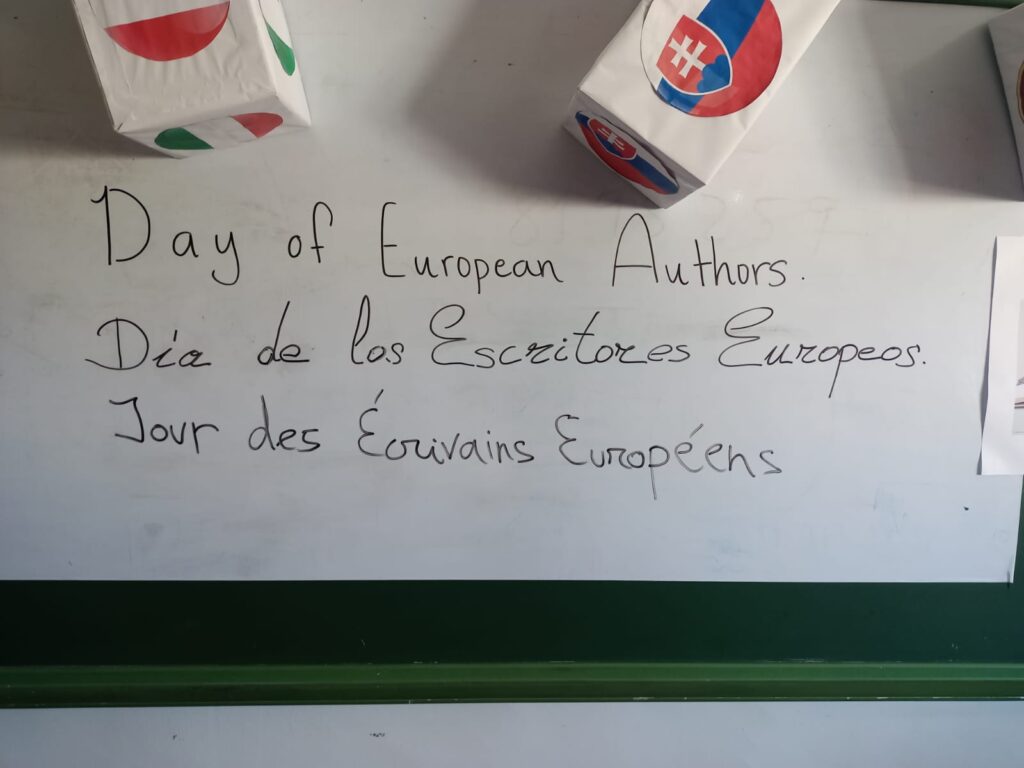 Day of European Authors.
Día de los Escritores Europeos.
Jour des Écrivains Européens